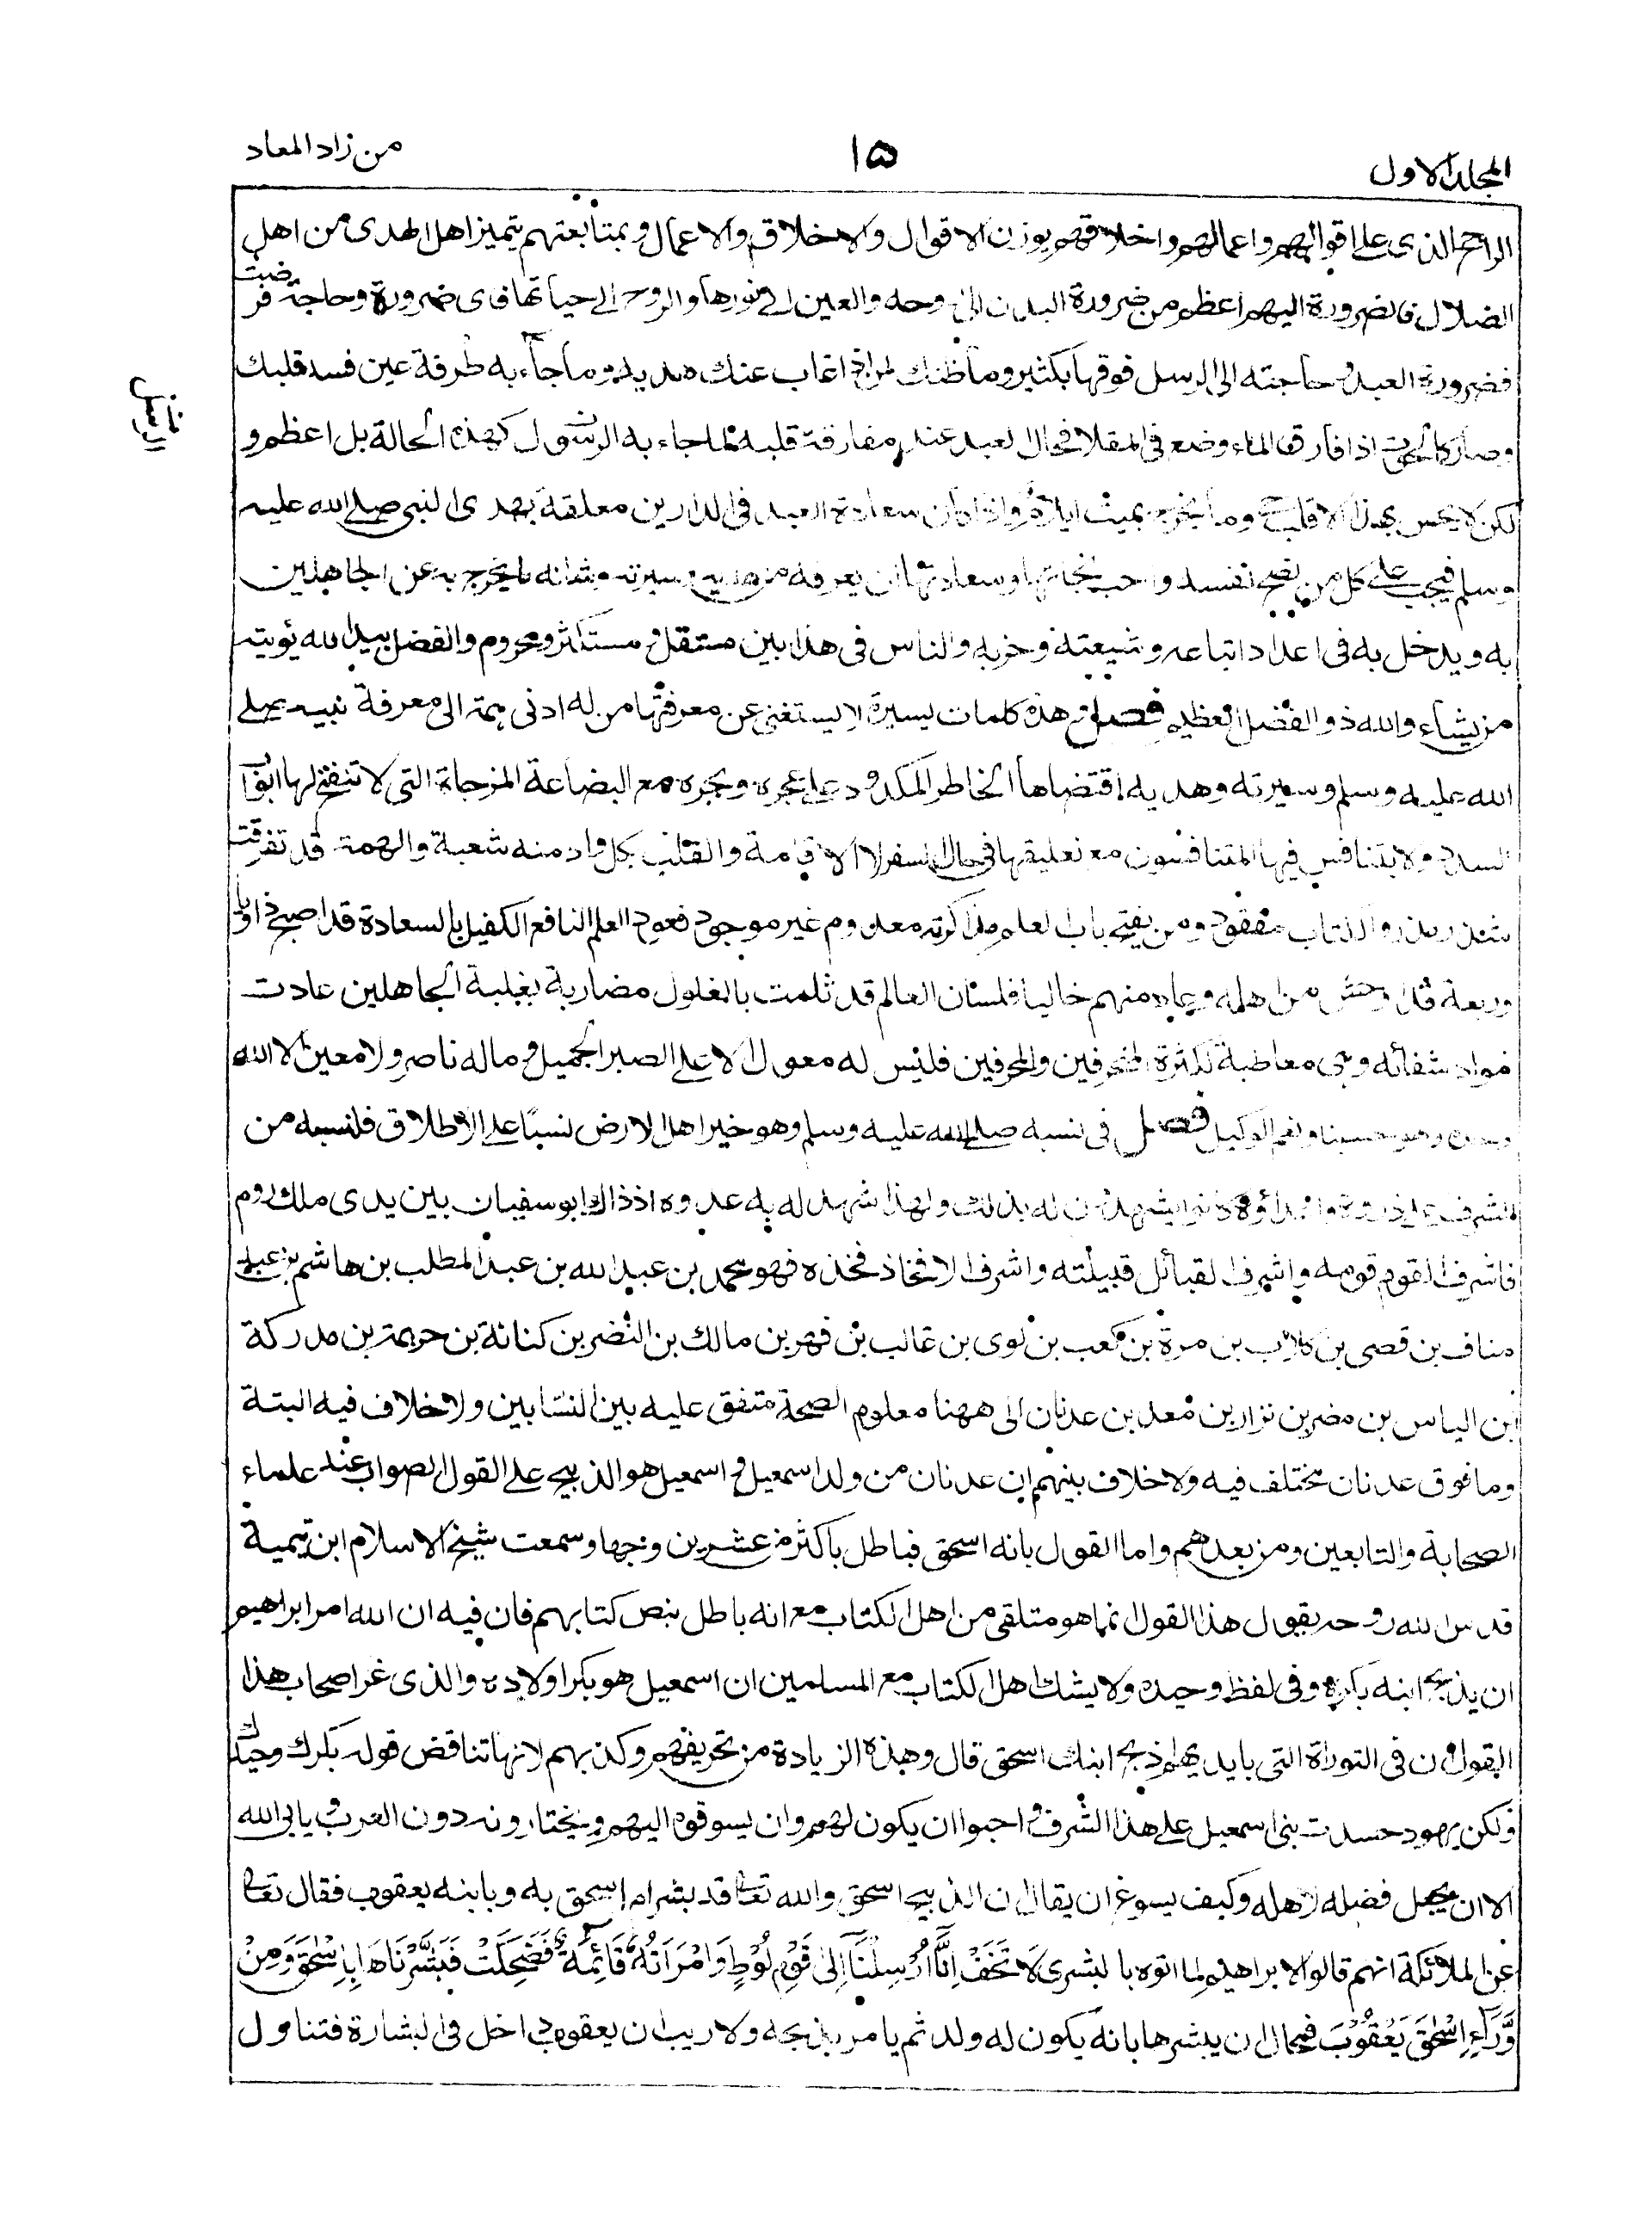 المجلد الاول
١٥
من زاد المعاد
الراجح الذى على اقوالهم واعمالهم واخلاقهم يوزن الاقوال والاخلاق والاعمال وبمتابعتهم يتميز اهل الهدى من اهل
الضلال فالضرورة اليهم اعظم من ضرورة البدن الى روحه والعين الى نورها والروح الى حياتها فاى ضرورة وحاجة فرضت
فضرورة العبد وحاجته الى الرسل فوقها بكثير وما ظنك بمن اذا غاب عنك هديه وما جاء به طرفة عين فسد قلبك
وصار كالحوت اذا فارق الماء وضع فى المقلاة فحال العبد عند مفارقة قلبه لما جاء به الرسول كهذه الحالة بل اعظم و
لكن لا يحس بهذا الا قلب حى وما لجرح بميت ايلام واذا كان سعادة العبد فى الدارين معلقة بهدى النبى صلى الله عليه
وسلم فيجب على كل من نصح نفسه واحب نجاتها وسعادتها ان يعرف من هديه وسيرته وشانه ما يخرج به عن الجاهلين
به ويدخل به فى اعداد اتباعه وشيعته وحزبه والناس فى هذا بين مستقل ومستكثر ومحروم والفضل بيد الله يؤتيه
من يشاء والله ذو الفضل العظيم فصل وهذه كلمات يسيرة لا يستغنى عن معرفتها من له ادنى همة الى معرفة نبيه صلى
الله عليه وسلم وسيرته وهديه اقتضاها الخاطر المكدود على عجره وبجره مع البضاعة المزجاة التى لا تنفتح لها ابواب
السدد ولا يتنافس فيها المتنافسون مع تعليقها فى حال السفر لا الاقامة والقلب بكل واد منه شعبة والهمة قد تفرقت
شذر مذر والكتاب مفقود ومن يفتح باب العلم مذاكرته معدوم غير موجود فعود العلم النافع الكفيل بالسعادة قد اصبح ذاويا
وربعه قد اوحش من اهله وعاد منهم خاليا فلسان العالم قد ثلمت بالغلول مضاربة بغلبة الجاهلين عادت
موارد شفائه وهى معاطبة لكثرة المنحرفين والمحرفين فليس له معول الا على الصبر الجميل وما له ناصر ولا معين الا الله
وحده وهو حسبنا ونعم الوكيل فصل فى نسبه صلى الله عليه وسلم وهو خير اهل الارض نسبا على الاطلاق فلنسبه من
الشرف على ذروة واعداؤه كانوا يشهدون له بذلك ولهذا شهد له به عدوه اذ ذاك ابو سفيان بين يدى ملك الروم
فاشرف القوم قومه واشرف القبائل قبيلته واشرف الافخاذ فخذه فهو محمد بن عبد الله بن عبد المطلب بن هاشم بن عبد
مناف بن قصى بن كلاب بن مرة بن كعب بن لوى بن غالب بن فهر بن مالك بن النضر بن كنانة بن خزيمة بن مدركة
ابن الياس بن مضر بن نزار بن معد بن عدنان الى ههنا معلوم الصحة متفق عليه بين النسابين ولا خلاف فيه البتة
وما فوق عدنان مختلف فيه ولا خلاف بينهم ان عدنان من ولد اسمعيل واسمعيل هو الذبيح على القول الصواب عند علماء
الصحابة والتابعين ومن بعدهم واما القول بانه اسحق فباطل باكثر من عشرين وجها وسمعت شيخ الاسلام ابن تيمية
قدس الله روحه يقول هذا القول انما هو متلقى من اهل الكتاب مع انه باطل بنص كتابهم فان فيه ان الله امر ابراهيم
ان يذبح ابنه بكره وفى لفظ وحيده ولا يشك اهل الكتاب مع المسلمين ان اسمعيل هو بكر اولاده والذى غر اصحاب هذا
القول ان فى التوراة التى بايديهم اذبح ابنك اسحق قال وهذه الزيادة من تحريفهم وكذبهم لانها تناقض قوله بكرك وحيدك
ولكن يهود حسدت بنى اسمعيل على هذا الشرف واحبوا ان يكون لهم وان يسوقوه اليهم ويختارونه دون العرب ويابى الله
الا ان يجعل فضله لاهله وكيف يسوغ ان يقال ان الذبيح اسحق والله تعالى قد بشر ام اسحق به وبابنه يعقوب فقال تعالى
عن الملائكة انهم قالوا لابراهيم لما اتوه بالبشرى لَا تَخَفْ اِنَّا اُرْسِلْنَا اِلٰى قَوْمِ لُوْطٍ وَامْرَاَتُهٗ قَائِمَةٌ فَضَحِكَتْ فَبَشَّرْنَاهَا بِاِسْحٰقَ وَمِنْ
وَّرَاءِ اِسْحٰقَ يَعْقُوْبَ فمحال ان يبشرها بانه يكون له ولد ثم يامر بذبحه ولا ريب ان يعقوب داخل فى البشارة فتناول